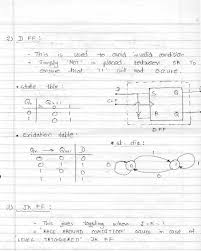 2) D FF :
- This is used to avoid invalid condition
- Simply NOT is placed between SR to
ensure that '11' will not occure.
• state table :
Qn Qn+1
0 0
1 1
S Q
R
D FF
• exitation table :
• st. dia :
Qn → Qn+1 D
0 0 0
0 1 1
1 0 0
1 1 1
JK FF :
- This gives toggling when J = K = 1
- " RACE AROUND CONDITION" occure in case of
LEVEL TRIGGERED JK FF